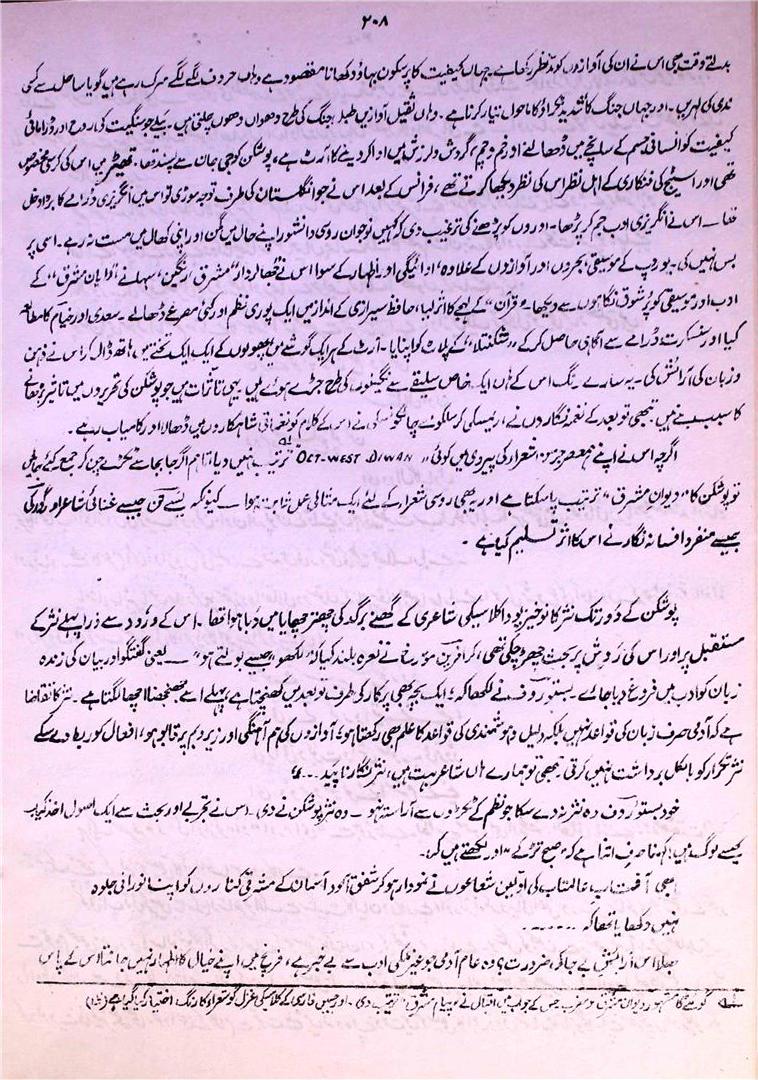 ۲۰۸
بدلتے وقت بھی اس نے ان کی آوازوں کو مدِنظر رکھا ہے، جہاں کیفیت کا پرسکون بہاؤ دکھانا مقصود ہے وہاں حروف لگے لگے سرک رہے ہیں گویا ساحل سے کسی
ندی کی لہریں۔ اور جہاں جنگ کا شدید ٹکراؤ کا ماحول تیار کرنا ہے۔ وہاں ثقیل آوازیں طبلِ جنگ کی طرح دھواں دھوں چلتی ہیں۔ بیلے جو سنگیت کی روح اور ڈرامائی
کیفیت کو انسانی جسم کے سانچے میں ڈھالنے اور خم و چم، گردش و لرزش میں ادا کر دینے کا آرٹ ہے، پوشکن کو جی جان سے پسند تھا۔ تھیٹر میں اس کی کرسی مخصوص
تھی اور اسٹیج کی فنکاری کے اہلِ نظر اس کی نظر دیکھا کرتے تھے، فرانس کے بعد اس نے جو انگلستان کی طرف توجہ موڑی تو اس میں انگریزی ڈرامے کا بڑا دخل
تھا۔ اس نے انگریزی ادب جم کر پڑھا۔ اوروں کو پڑھنے کی ترغیب دی کہ کہیں نوجوان روسی دانشور اپنے حال میں مگن اور اپنی کھال میں مست نہ رہے۔ اسی پر
بس نہیں کی۔ یورپ کے موسیقی بحروں اور آوازوں کے علاوہ ادائیگی اور اظہار کے سوا اس نے تھالردار "مشرقِ رنگین" سہانے "دامانِ مشرق" کے
ادب اور موسیقی کو پرشوق نگاہوں سے دیکھا۔ "قرآن" کے لہجے کا اثر لیا، حافظ شیرازی کے انداز میں ایک پوری نظم اور کئی مصرعے ڈھالے۔ سعدی اور خیام کا مطالعہ
کیا اور سنسکرت ڈرامے سے آگاہی حاصل کرکے "شکنتلا" کے پلاٹ کو اپنایا۔ آرٹ کے ہر ایک گوشے میں پھولوں کے ایک ایک تختے میں ہاتھ ڈال کر اس نے ذہن
و زبان کی آرائش کی۔ یہ سارے رنگ اس کے ہاں ایک خاص سلیقے سے نگینوں کی طرح جڑے ہوئے ہیں۔ یہی تاثرات ہیں جو پوشکن کی تحریروں میں تاثیر بڑھانے
کا سبب بنے ہیں۔ تبھی تو بعد کے نغمہ نگاروں نے، ریمسکی کرسکوف چائیکوفسکی نے اس کے کلام کو نغماتی شاہکاروں میں ڈھالا اور کامیاب رہے۔
اگرچہ اس نے اپنے ہمعصر جرمن اشعار کی پیروی میں کوئی "OCT-WEST DIWAN" ترتیب نہیں دیا، تاہم اگر جابجا سے ٹکڑے چن کر جمع کئے جائیں
تو پوشکن کا "دیوانِ مشرق" ترتیب پا سکتا ہے اور یہ بھی روسی شعراء کے لئے ایک مثالی عمل ثابت ہوا۔ کیونکہ یسے نن جیسے غنائی شاعر اور گورکی
جیسے منفرد افسانہ نگار نے اس کا اثر تسلیم کیا ہے۔
پوشکن کے دور تک نثر کا نوخیز پودا کلاسیکی شاعری کے گھنے برگد کی چھتر چھایا میں دبا ہوا تھا۔ اس کے ورود سے ذرا پہلے نثر کے
مستقبل پر اور اس کی روش پر بحث چھڑ چکی تھی، کرامزین مورخ نے نعرہ بلند کیا کہ "لکھو، جیسے بولتے ہو"۔ یعنی گفتگو اور بیان کی زندہ
زبان کو ادب میں فروغ دیا جائے۔ بستوزوف نے لکھا کہ: ایک بچہ بھی پرکار کی طرف تو بعد میں کھنچتا ہے، پہلے اسے جھنجھنا اچھا لگتا ہے۔ نثر کا تقاضا
ہے کہ آدمی صرف زبان کی قواعد نہیں بلکہ دلیل و ہوشمندی کی قواعد کا علم بھی رکھتا ہو، آوازوں کی ہم آہنگی اور زیر و بم پر قابو ہو، افعال کو ربط دے سکے
نثر تکرار کو بالکل برداشت نہیں کرتی۔ تبھی تو ہمارے ہاں شاعر بہت ہیں، نثر نگار ناپید ..."
خود بستوزوف وہ نثر نہ دے سکا جو نظم کے گجروں سے آراستہ نہ ہو۔ وہ نثر پوشکن نے دی۔ اس نے تجربے اور بحث سے ایک اصول اخذ کیا۔
کیسے لوگ ہیں؛ کہنا صرف اتنا ہے کہ "صبح تڑکے" اور لکھتے ہیں کہ:
ابھی آفتابِ عالمتاب کی اولین شعاعوں نے نمودار ہو کر شفق آلود آسمان کے مشرقی کناروں کو اپنا نورانی جلوہ
نہیں دکھایا تھا کہ .......
بھلا اس آرائشِ بے جا کی کیا ضرورت؟ وہ عام آدمی جو غیر ملکی ادب سے بے خبر ہے، فرنچ میں اپنے خیال کا اظہار نہیں جانتا اس کے پاس
۹۱ گوئٹے کا مشہور دیوان مشرق و مغرب جس کے جواب میں اقبال نے "پیامِ مشرق" ترتیب دی۔ اور جس میں فارسی کے کلاسیکی غزل گو شعراء کا رنگ اختیار کیا گیا ہے